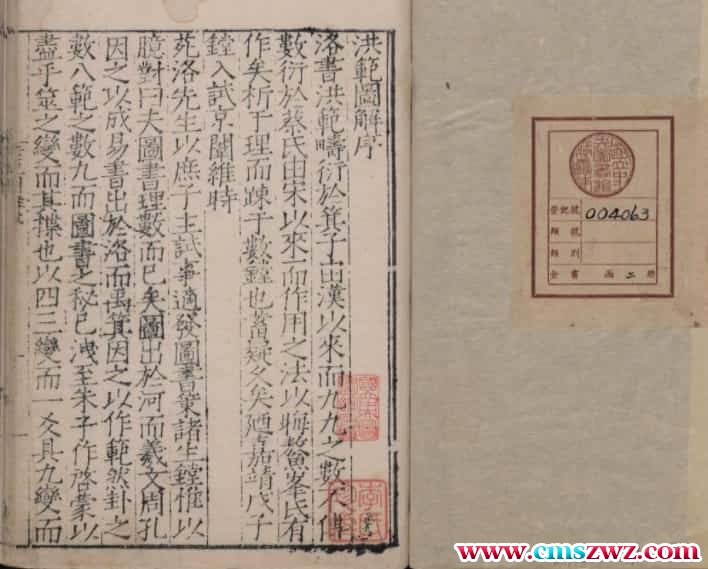 洪範圖解序
洛書洪範疇衍於箕子由漢以來而九九之數失傳
數衍於蔡氏由宋以來而作用之法以晦鰲峯氏有
作矣析于理而踈于數鏜也蓄疑久矣廼嘉靖戊子
鏜入試京闈維時
苑洛先生以庶子主試事適發圖書策諸生鏜惟以
臆對曰夫圖書理數而已矣圖出於河而羲文周孔
因之以成易書出於洛而禹箕因之以作範然卦之
數八範之數九而圖書之秘已洩至朱子作啓蒙以
盡乎筮之變而其揲也以四三變而一爻具九變而
登記號 004063
類號
類別
全書 函 二 冊
www.cmszwz.com